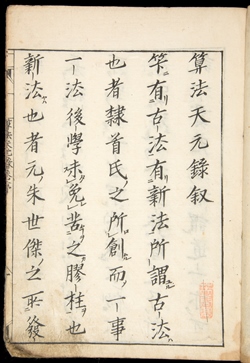 算法天元錄叙
筭有古法有新法所謂古法
也者隸首氏之所創而一事
一法後學未免苦之膠柱也
新法也者元朱世傑之所發